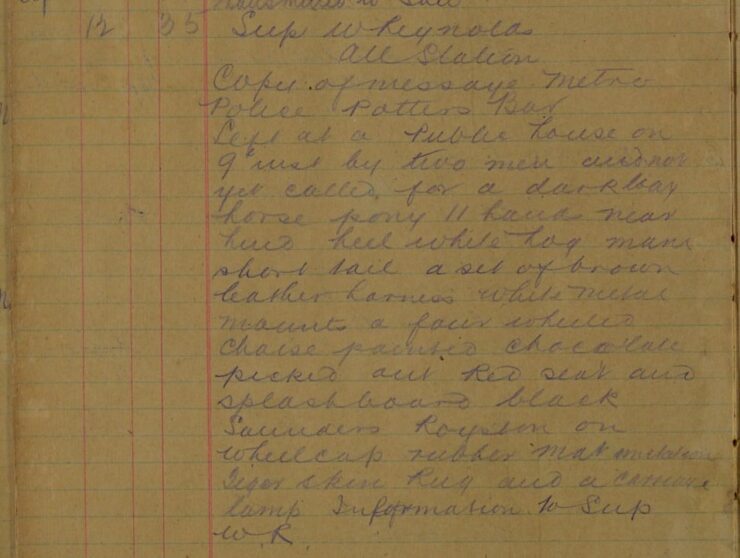 12 35 Sup W Reynolds
All Station
Copy of message Metro
Police Potters Bar
Left at a Public house on
9th inst by two men and not
yet called for a dark bay
horse pony 11 hands near
hind heel white hog mane
short tail a set of brown
leather harness white metal
mounts a four wheeled
chaise painted chocolate
picked out Red seat and
splashboard black
Saunders Royston on
wheelcap rubber mat imitation
Tiger skin Rug and a carriage
lamp Information to Sup
WR